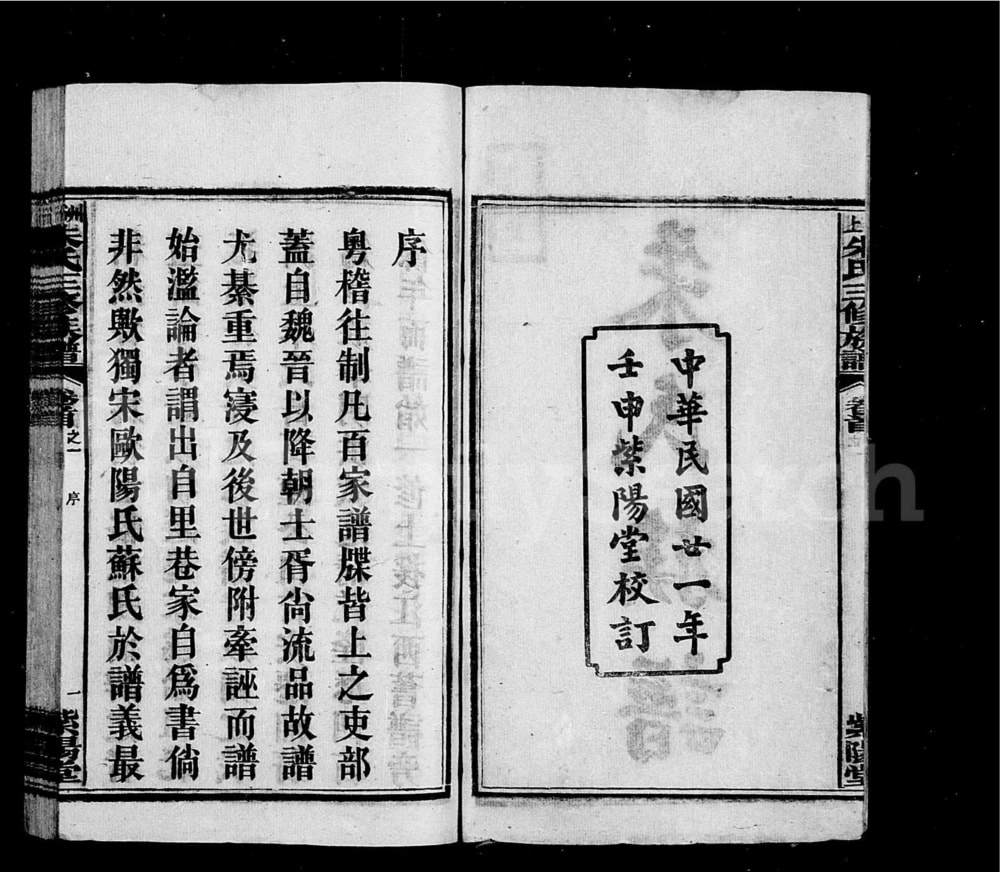 上
朱氏三修族譜
卷首
紫陽堂
中華民國廿一年
壬申紫陽堂校訂
序
粤稽往制凡百家譜牒皆上之吏部
蓋自魏晉以降朝士胥尙流品故譜
尤綦重焉寖及後世傍附牽誣而譜
始濫論者謂出自里巷家自爲書倘
非然歟獨宋歐陽氏蘇氏於譜義最
洲朱氏三修族譜
卷首之一
序
一
紫陽堂